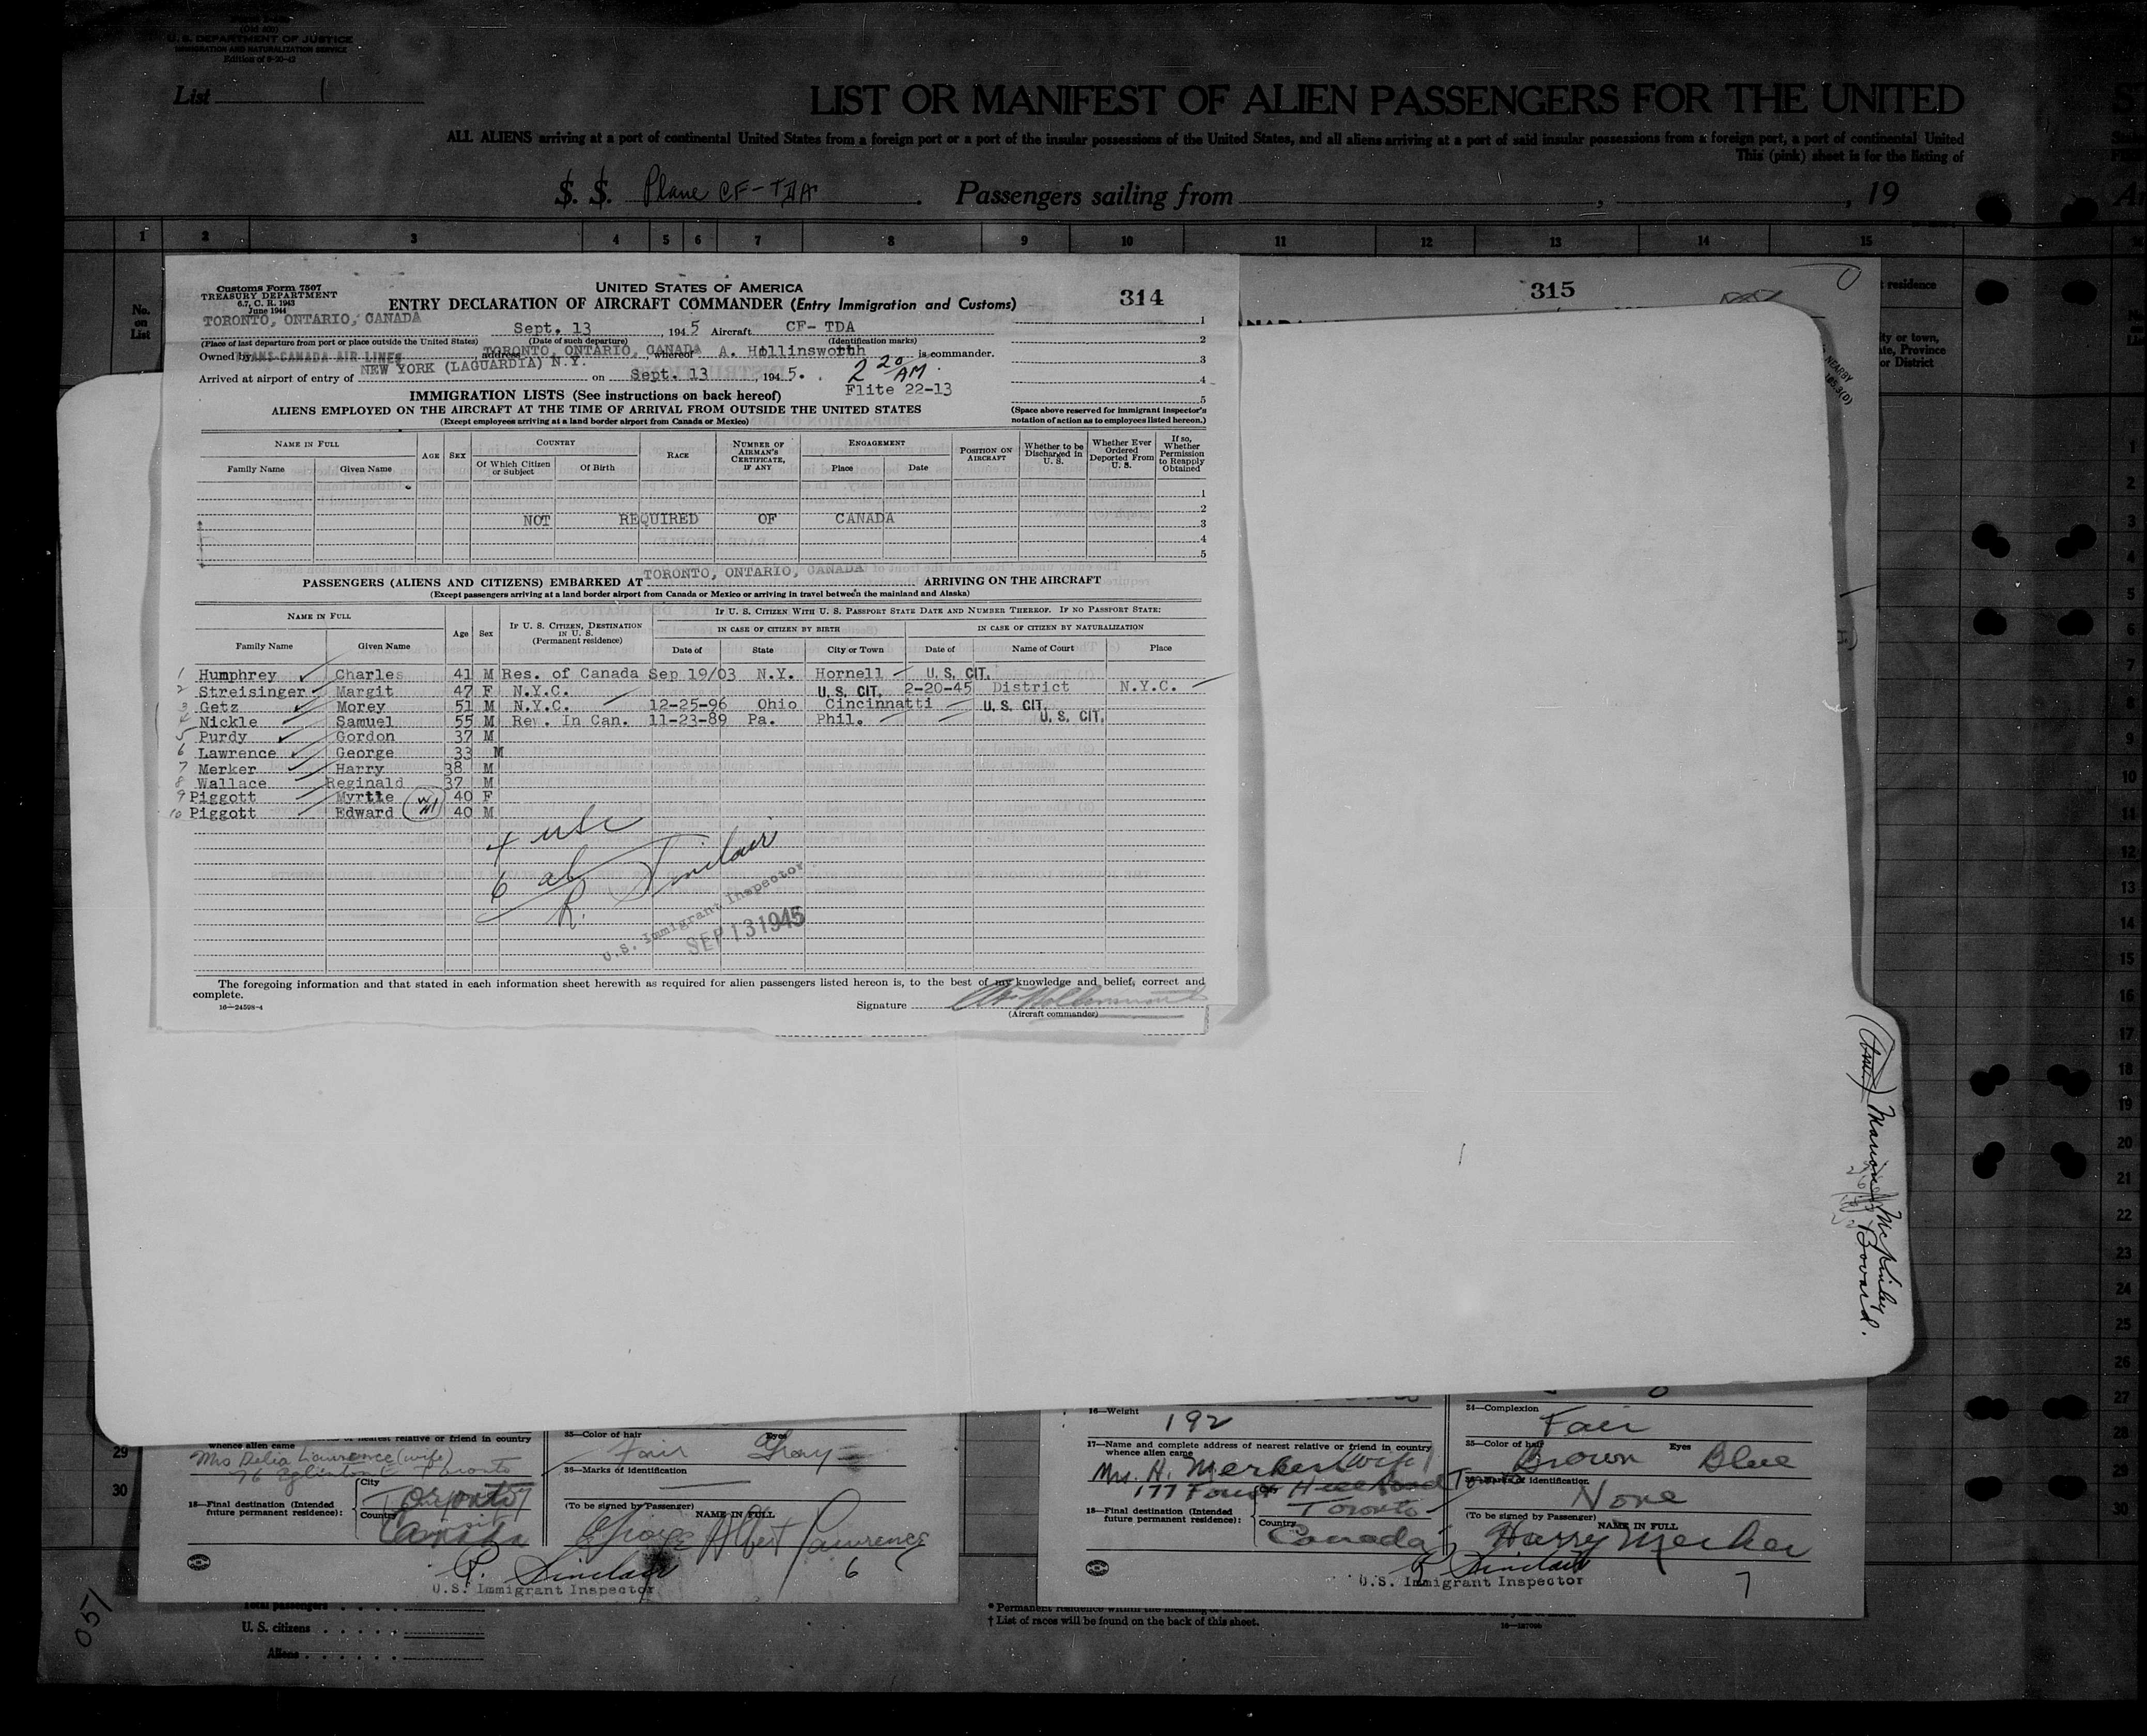 (Old 500)
U. S. DEPARTMENT OF JUSTICE
IMMIGRATION AND NATURALIZATION SERVICE
List 1
LIST OR MANIFEST OF ALIEN PASSENGERS FOR THE UNITED
ALL ALIENS arriving at a port of continental United States from a foreign port or a port of the insular possessions of the United States, and all aliens arriving at a port of said insular possessions from a foreign port, a port of continental United
This (pink) sheet is for the listing of
S. S. Plane CF-TDA. Passengers sailing from , , 19
1 2 3 4 5 6 7 8 9 10 11 12 13 14 15
No. on List
Customs Form 7507
TREASURY DEPARTMENT
6.7, C. R. 1943
June 1944
UNITED STATES OF AMERICA
ENTRY DECLARATION OF AIRCRAFT COMMANDER (Entry Immigration and Customs)
314
TORONTO, ONTARIO, CANADA Sept. 13, 1945 Aircraft CF- TDA
(Place of last departure from port or place outside the United States) (Date of such departure) (Identification marks)
Owned by TRANS-CANADA AIR LINES address TORONTO, ONTARIO, CANADA whereof A. Hollinsworth is commander.
Arrived at airport of entry of NEW YORK (LAGUARDIA) N.Y. on Sept. 13, 1945. 2 20 AM
Flite 22-13
IMMIGRATION LISTS (See instructions on back hereof)
ALIENS EMPLOYED ON THE AIRCRAFT AT THE TIME OF ARRIVAL FROM OUTSIDE THE UNITED STATES
(Except employees arriving at a land border airport from Canada or Mexico)
(Space above reserved for immigrant inspector's notation of action as to employees listed hereon.)
NAME IN FULL AGE SEX COUNTRY RACE NUMBER OF AIRMAN'S CERTIFICATE, IF ANY ENGAGEMENT POSITION ON AIRCRAFT Whether to be Discharged in U. S. Whether Ever Ordered Deported From U. S. If so, Whether Permission to Reapply Obtained
Family Name Given Name Of Which Citizen or Subject Of Birth Place Date
NOT REQUIRED OF CANADA
PASSENGERS (ALIENS AND CITIZENS) EMBARKED AT TORONTO, ONTARIO, CANADA ARRIVING ON THE AIRCRAFT
(Except passengers arriving at a land border airport from Canada or Mexico or arriving in travel between the mainland and Alaska)
NAME IN FULL Age Sex IF U. S. CITIZEN, DESTINATION IN U. S. (Permanent residence) IF U. S. CITIZEN WITH U. S. PASSPORT STATE DATE AND NUMBER THEREOF. IF NO PASSPORT STATE:
IN CASE OF CITIZEN BY BIRTH IN CASE OF CITIZEN BY NATURALIZATION
Family Name Given Name Date of State City or Town Date of Name of Court Place
1 Humphrey Charles 41 M Res. of Canada Sep 19/03 N.Y. Hornell U. S. CIT.
2 Streisinger Margit 47 F N.Y.C. U. S. CIT. 2-20-45 District N.Y.C.
3 Getz Morey 51 M N.Y.C. 12-25-96 Ohio Cincinnatti U. S. CIT.
4 Nickle Samuel 55 M Rev. In Can. 11-23-89 Pa. Phil. U. S. CIT.
5 Purdy Gordon 37 M
6 Lawrence George 33 M
7 Merker Harry 38 M
8 Wallace Reginald 37 M
9 Piggott Myrtle 40 F
10 Piggott Edward 40 M
4 usc
6 al
R. Sinclair
U.S. Immigrant Inspector
SEP 13 1945
The foregoing information and that stated in each information sheet herewith as required for alien passengers listed hereon is, to the best of my knowledge and belief, correct and
complete.
16—24598-4
Signature
(Aircraft commander)
315
residence
Marion McKinley
Bovard.
whence alien came
Mrs Delia Lawrence (wife)
76 Eglinton E Toronto
18—Final destination (Intended future permanent residence):
City Toronto
Country Canada
35—Color of hair Fair Eyes Gray
36—Marks of identification
(To be signed by Passenger)
NAME IN FULL
George Albert Lawrence
R. Sinclair
6
U.S. Immigrant Inspector
16—Weight 192
17—Name and complete address of nearest relative or friend in country
whence alien came
Mrs. H. Merker (wife)
177 Forest Hill Road
18—Final destination (Intended future permanent residence):
Toronto
Country Canada
34—Complexion Fair
35—Color of hair Brown Eyes Blue
36—Marks of identification
None
(To be signed by Passenger)
NAME IN FULL
Harry Merker
R. Sinclair
U.S. Immigrant Inspector
7
29
30
051
Total passengers
U. S. citizens
Aliens
† List of races will be found on the back of this sheet.